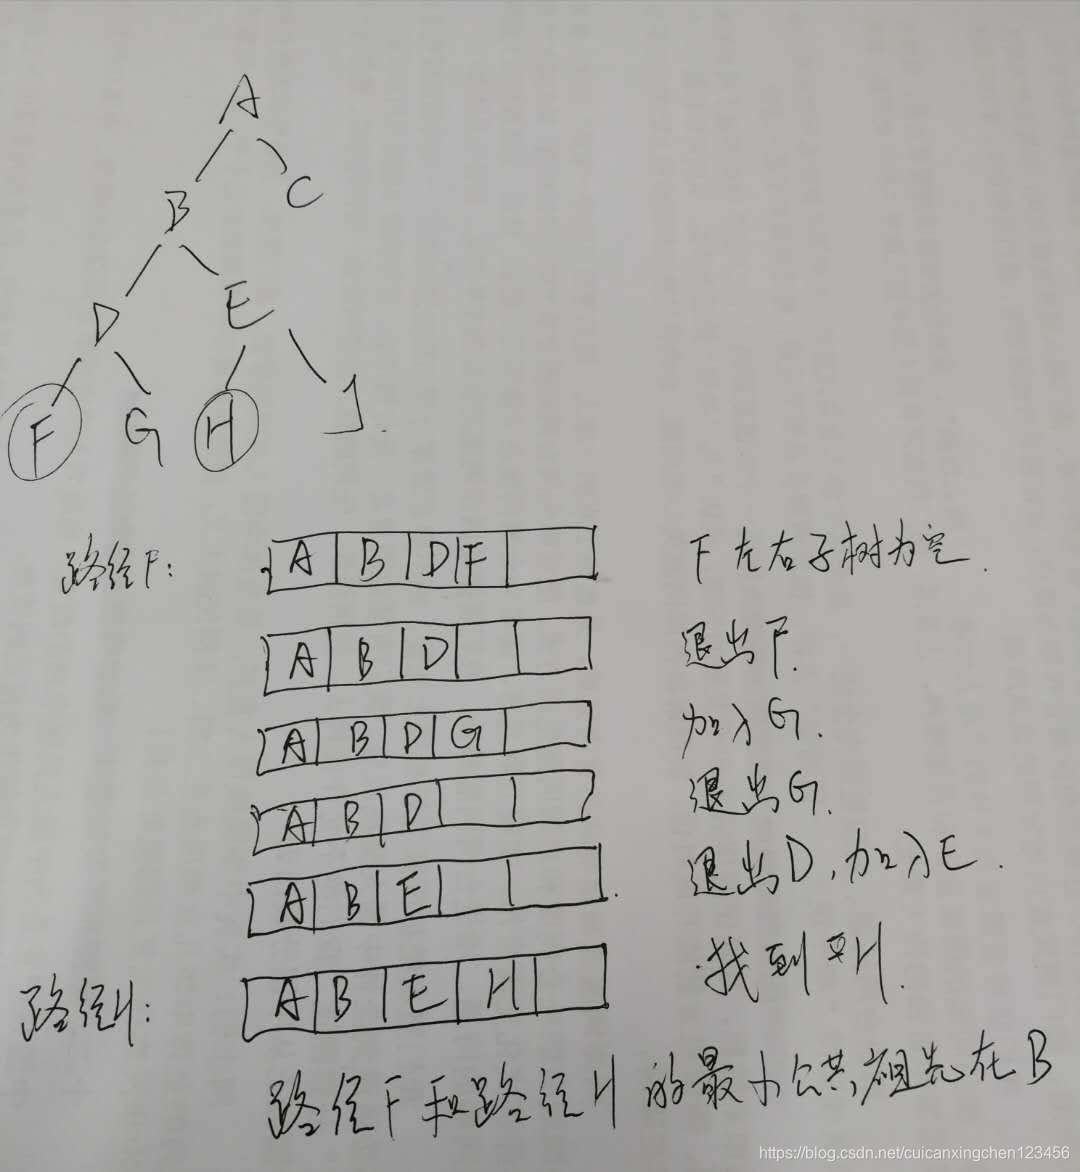 A
B C
D E
F G H J
路径F: A B D F F左右子树为空.
A B D 退出F.
A B D G 加入G.
A B D 退出G.
A B E 退出D,加入E.
路径H: A B E H 找到H.
路径F和路径H的最小公共祖先在B
https://blog.csdn.net/cuicanxingchen123456